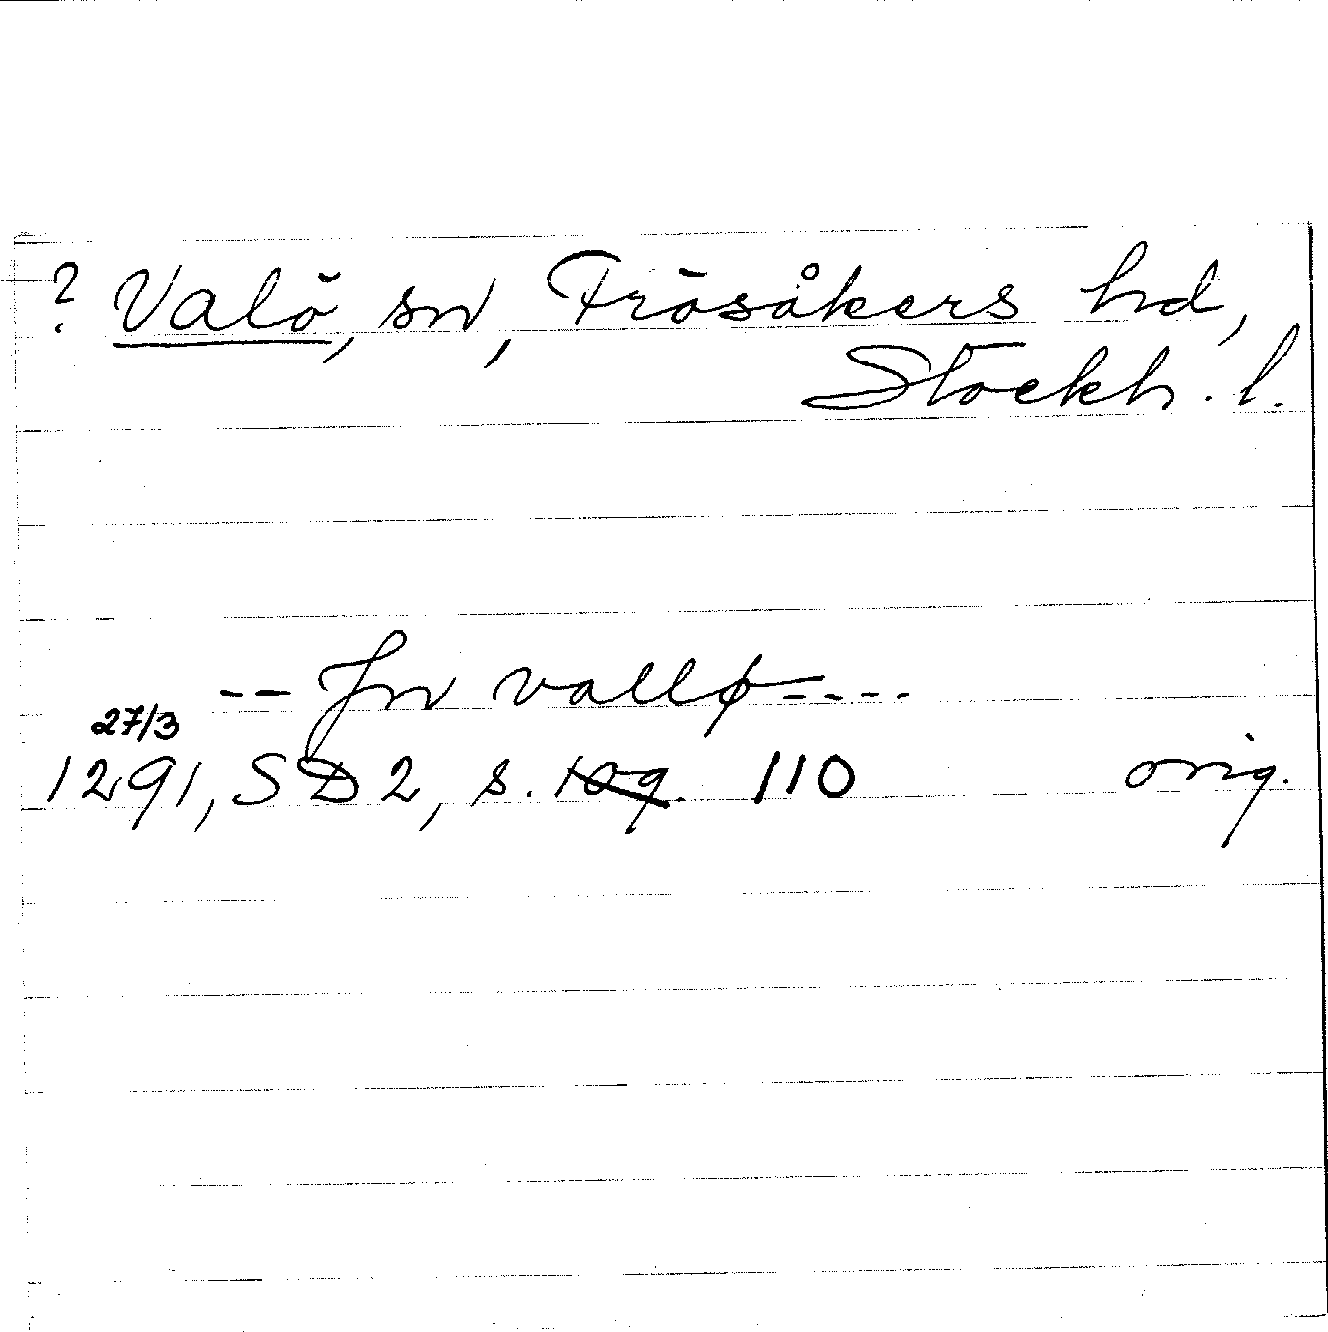 ? Valö, sn, Frösåkers hd,
Stockh. l.
-- Jn vallø ----
27/3
1291, SD 2, s. 109. 110 orig.